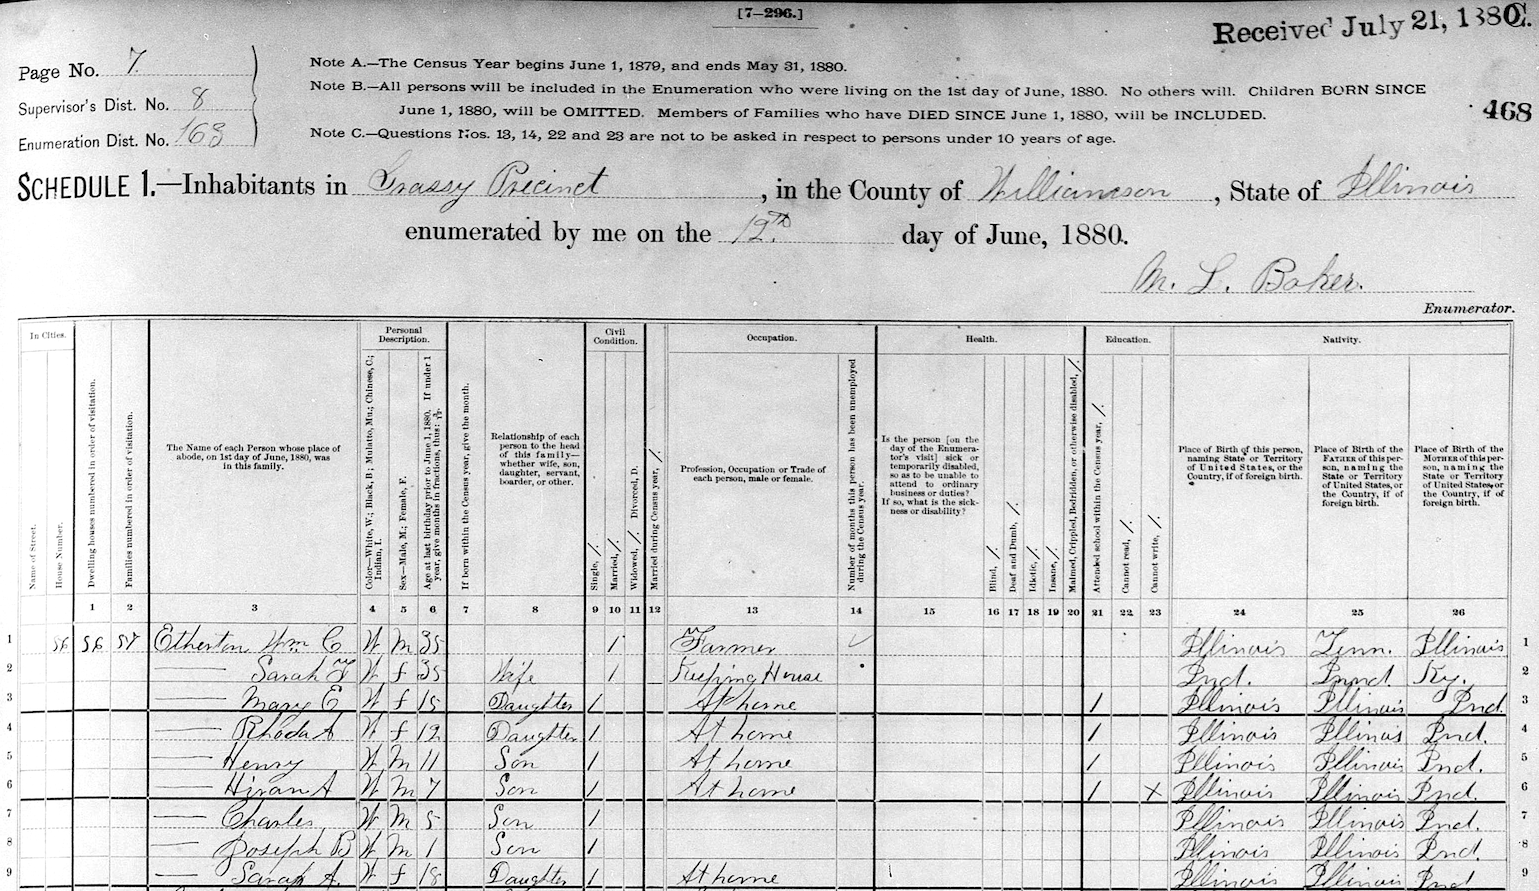 [7-296.]
Received July 21, 1880.
Page No. 7
Supervisor's Dist. No. 8
Enumeration Dist. No. 163
Note A.—The Census Year begins June 1, 1879, and ends May 31, 1880.
Note B.—All persons will be included in the Enumeration who were living on the 1st day of June, 1880. No others will. Children BORN SINCE
June 1, 1880, will be OMITTED. Members of Families who have DIED SINCE June 1, 1880, will be INCLUDED.
Note C.—Questions Nos. 13, 14, 22 and 23 are not to be asked in respect to persons under 10 years of age.
468
SCHEDULE 1.—Inhabitants in Grassy Precinct, in the County of Williamson, State of Illinois
enumerated by me on the 12th day of June, 1880.
M. L. Baker.
Enumerator.
In Cities.
Name of Street.
House Number.
Dwelling houses numbered in order of visitation.
Families numbered in order of visitation.
The Name of each Person whose place of
abode, on 1st day of June, 1880, was
in this family.
Personal
Description.
Color—White, W.; Black, B.; Mulatto, Mu.; Chinese, C.;
Indian, I.
Sex—Male, M.; Female, F.
Age at last birthday prior to June 1, 1880. If under 1
year, give months in fractions, thus: 3/12.
If born within the Census year, give the month.
Relationship of each
person to the head
of this family—
whether wife, son,
daughter, servant,
boarder, or other.
Civil
Condition.
Single, /.
Married, /.
Widowed, /. Divorced, D.
Married during Census year, /.
Occupation.
Profession, Occupation or Trade of
each person, male or female.
Number of months this person has been unemployed
during the Census year.
Health.
Is the person [on the
day of the Enumera-
tor's visit] sick or
temporarily disabled,
so as to be unable to
attend to ordinary
business or duties?
If so, what is the sick-
ness or disability?
Blind, /.
Deaf and Dumb, /.
Idiotic, /.
Insane, /.
Maimed, Crippled, Bedridden, or otherwise disabled, /.
Education.
Attended school within the Census year, /.
Cannot read, /.
Cannot write, /.
Nativity.
Place of Birth of this person,
naming State or Territory
of United States, or the
Country, if of foreign birth.
Place of Birth of the
FATHER of this per-
son, naming the
State or Territory
of United States, or
the Country, if of
foreign birth.
Place of Birth of the
MOTHER of this per-
son, naming the
State or Territory
of United States, or
the Country, if of
foreign birth.
1 2 3 4 5 6 7 8 9 10 11 12 13 14 15 16 17 18 19 20 21 22 23 24 25 26
1 56 56 57 Etherton Wm C W M 35 / Farmer Illinois Tenn. Illinois 1
2 —— Sarah F W f 35 Wife / Keeping House Ind. Ind. Ky. 2
3 —— Mary E W f 15 Daughter / At home / Illinois Illinois Ind. 3
4 —— Rhoda A W f 12 Daughter / At home / Illinois Illinois Ind. 4
5 —— Henry W M 11 Son / At home / Illinois Illinois Ind. 5
6 —— Hiram A W M 7 Son / At home / X Illinois Illinois Ind. 6
7 —— Charles W M 5 Son / Illinois Illinois Ind. 7
8 —— Joseph B W M 1 Son / Illinois Illinois Ind. 8
9 —— Sarah A. W f 18 Daughter / At home Illinois Illinois Ind 9